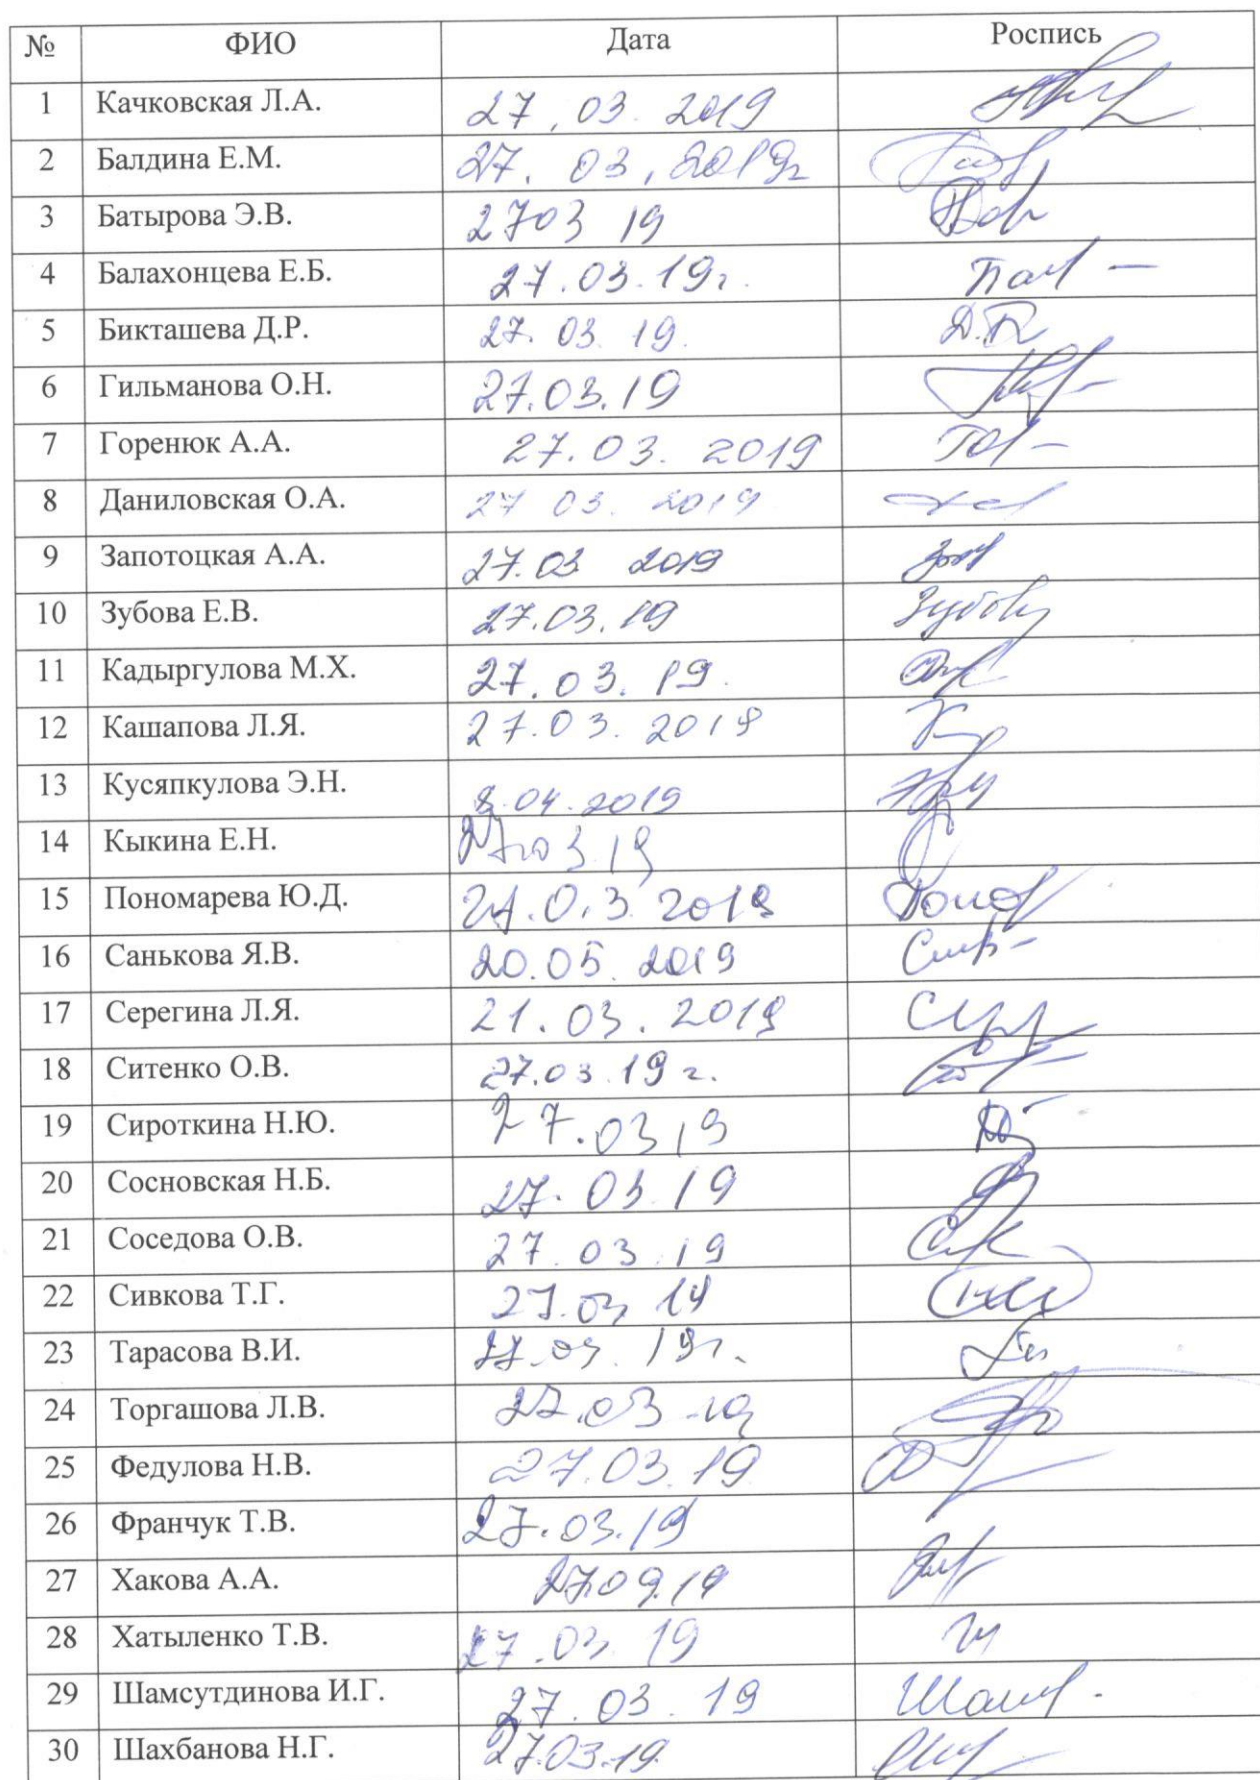 № ФИО Дата Роспись
1 Качковская Л.А. 27.03.2019
2 Балдина Е.М. 27.03.2019г
3 Батырова Э.В. 2703 19
4 Балахонцева Е.Б. 27.03.19г.
5 Бикташева Д.Р. 27.03.19.
6 Гильманова О.Н. 27.03.19
7 Горенюк А.А. 27.03.2019
8 Даниловская О.А. 27 03. 2019
9 Запотоцкая А.А. 27.03 2019
10 Зубова Е.В. 27.03.19
11 Кадыргулова М.Х. 27.03.19.
12 Кашапова Л.Я. 27.03.2019
13 Кусяпкулова Э.Н. 8.04.2019
14 Кыкина Е.Н. 27.03.19
15 Пономарева Ю.Д. 27.03.2019
16 Санькова Я.В. 20.05.2019
17 Серегина Л.Я. 21.03.2019
18 Ситенко О.В. 27.03.19г.
19 Сироткина Н.Ю. 27.03 19
20 Сосновская Н.Б. 27.03.19
21 Соседова О.В. 27.03.19
22 Сивкова Т.Г. 27.03 19
23 Тарасова В.И. 27.03.19г.
24 Торгашова Л.В. 27.03.19
25 Федулова Н.В. 27.03.19
26 Франчук Т.В. 27.03.19
27 Хакова А.А. 27.09.19
28 Хатыленко Т.В. 27.03.19
29 Шамсутдинова И.Г. 27.03.19
30 Шахбанова Н.Г. 27.03.19